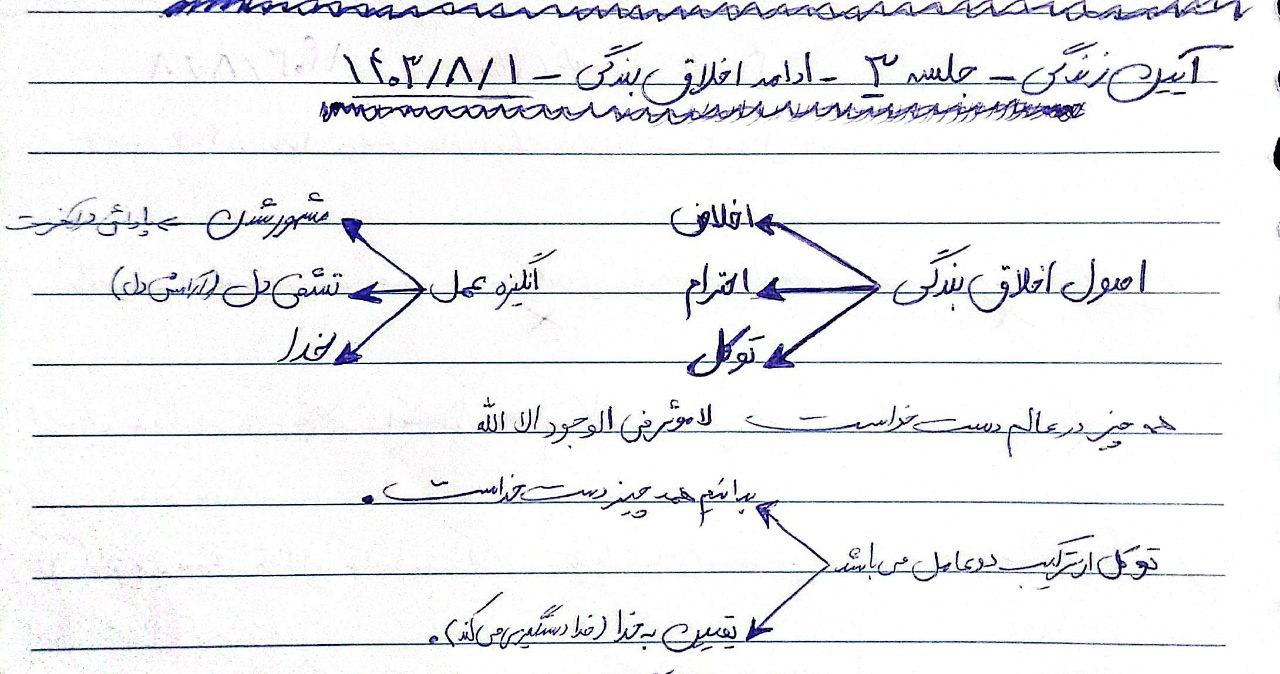 آیین زندگی - جلسه ۳ - ادامه اخلاق بندگی - ۱۴۰۳/۸/۱
اصول اخلاق بندگی
اخلاص
احترام
توکل
انگیزه عمل
مشهور شدن -> پاداش در آخرت
تشفی دل (آرامش دل)
خدا
همه چیز در عالم دست خداست لا موثر فی الوجود الا الله
توکل از ترکیب دو عامل می باشد
بدانیم همه چیز دست خداست.
یقین به خدا (خدا دستگیری می کند).